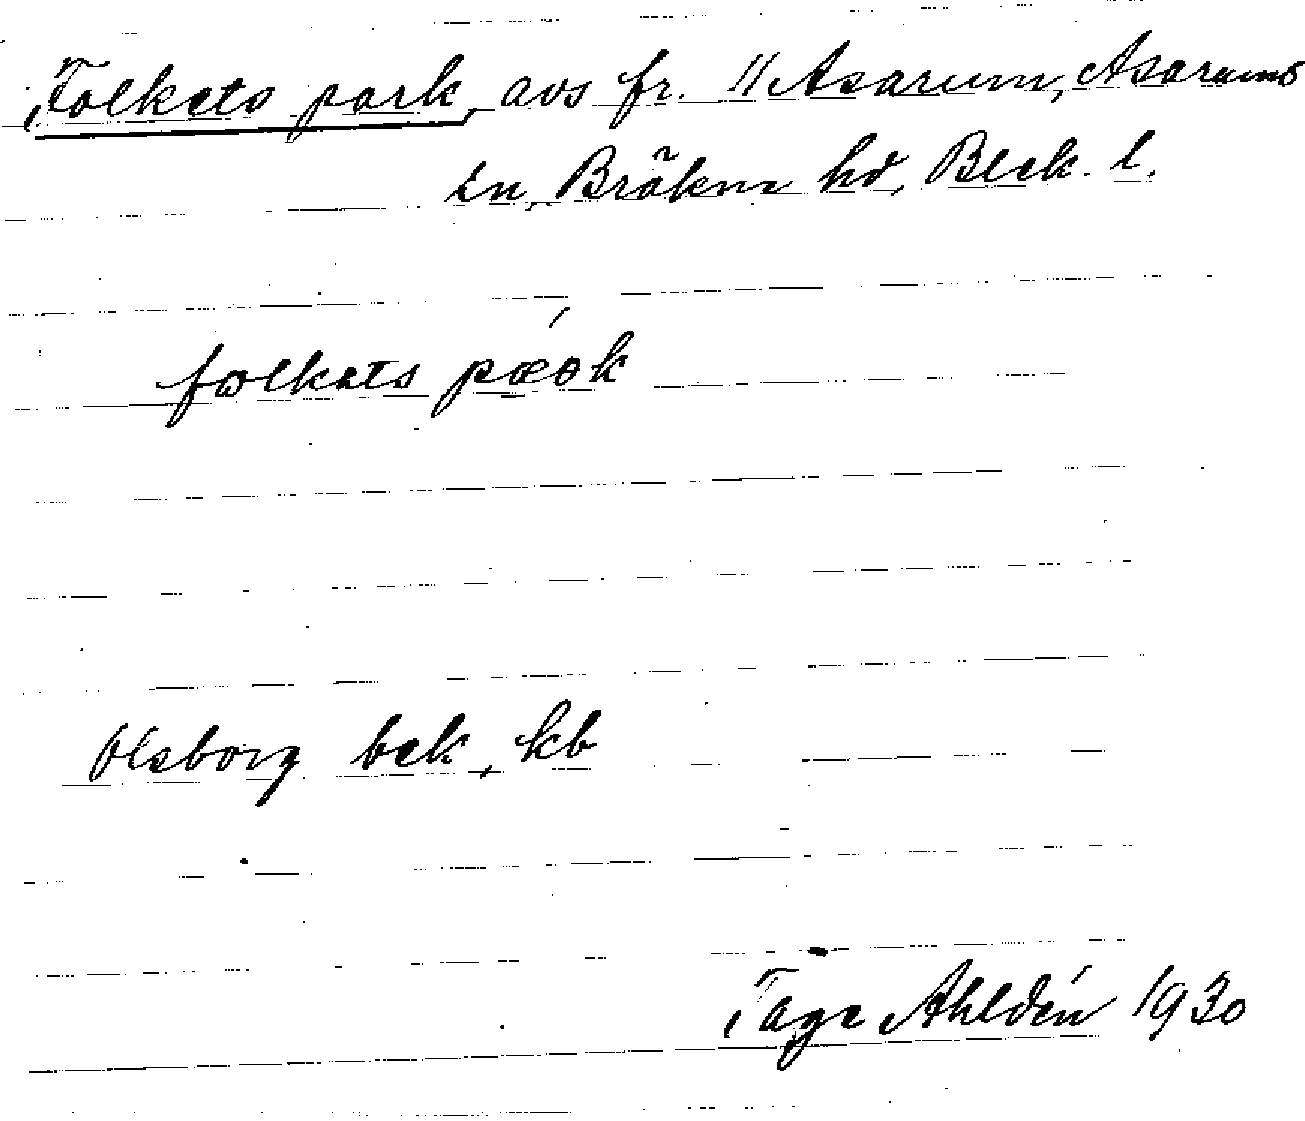 Folkets park, avs fr. 11 Asarum, Asarums
sn, Bräkne hd, Blek. l.
folkets pæək
Olsborg bek, kb
Tage Ahldén 1930